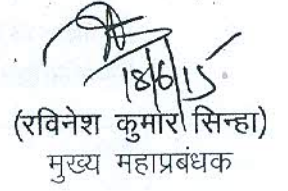 18/6/15
(रविनेश कुमार सिन्हा)
मुख्य महाप्रबंधक